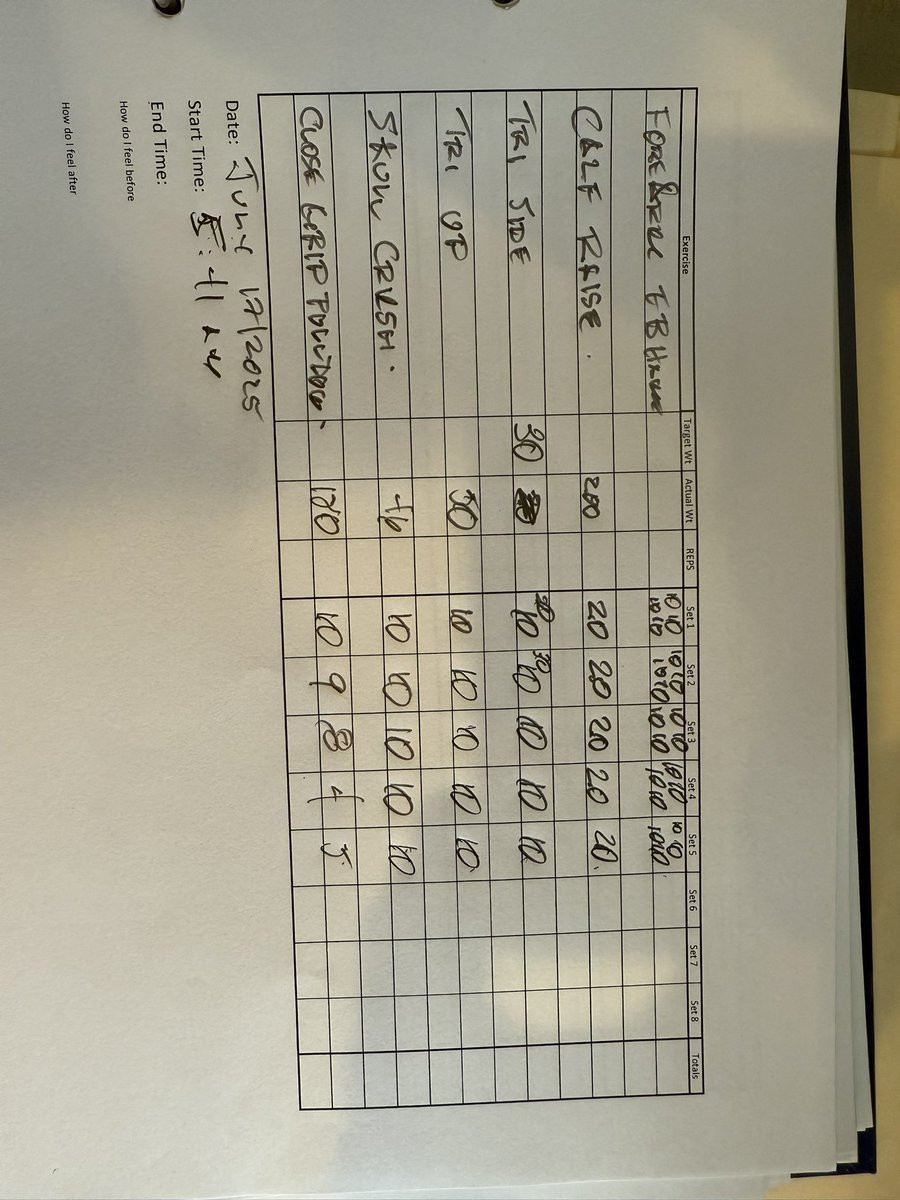 Exercise Target Wt Actual Wt REPS Set 1 Set 2 Set 3 Set 4 Set 5 Set 6 Set 7 Set 8 Totals
10 10 10 10 10 10 10 10 10 10
10 10 10 10 10 10 10 10 10 10
CALF RAISE. 200 20 20 20 20 20.
30 30
TRI SIDE 30 10 10 10 10 10
TRI UP 50 10 10 10 10 10.
SKULL CRUSH. 10 10 10 10 10
CLOSE GRIP 120 10 9 8 4 5
Date: JUNE 17/2025
Start Time:
End Time:
How do I feel before
How do I feel after